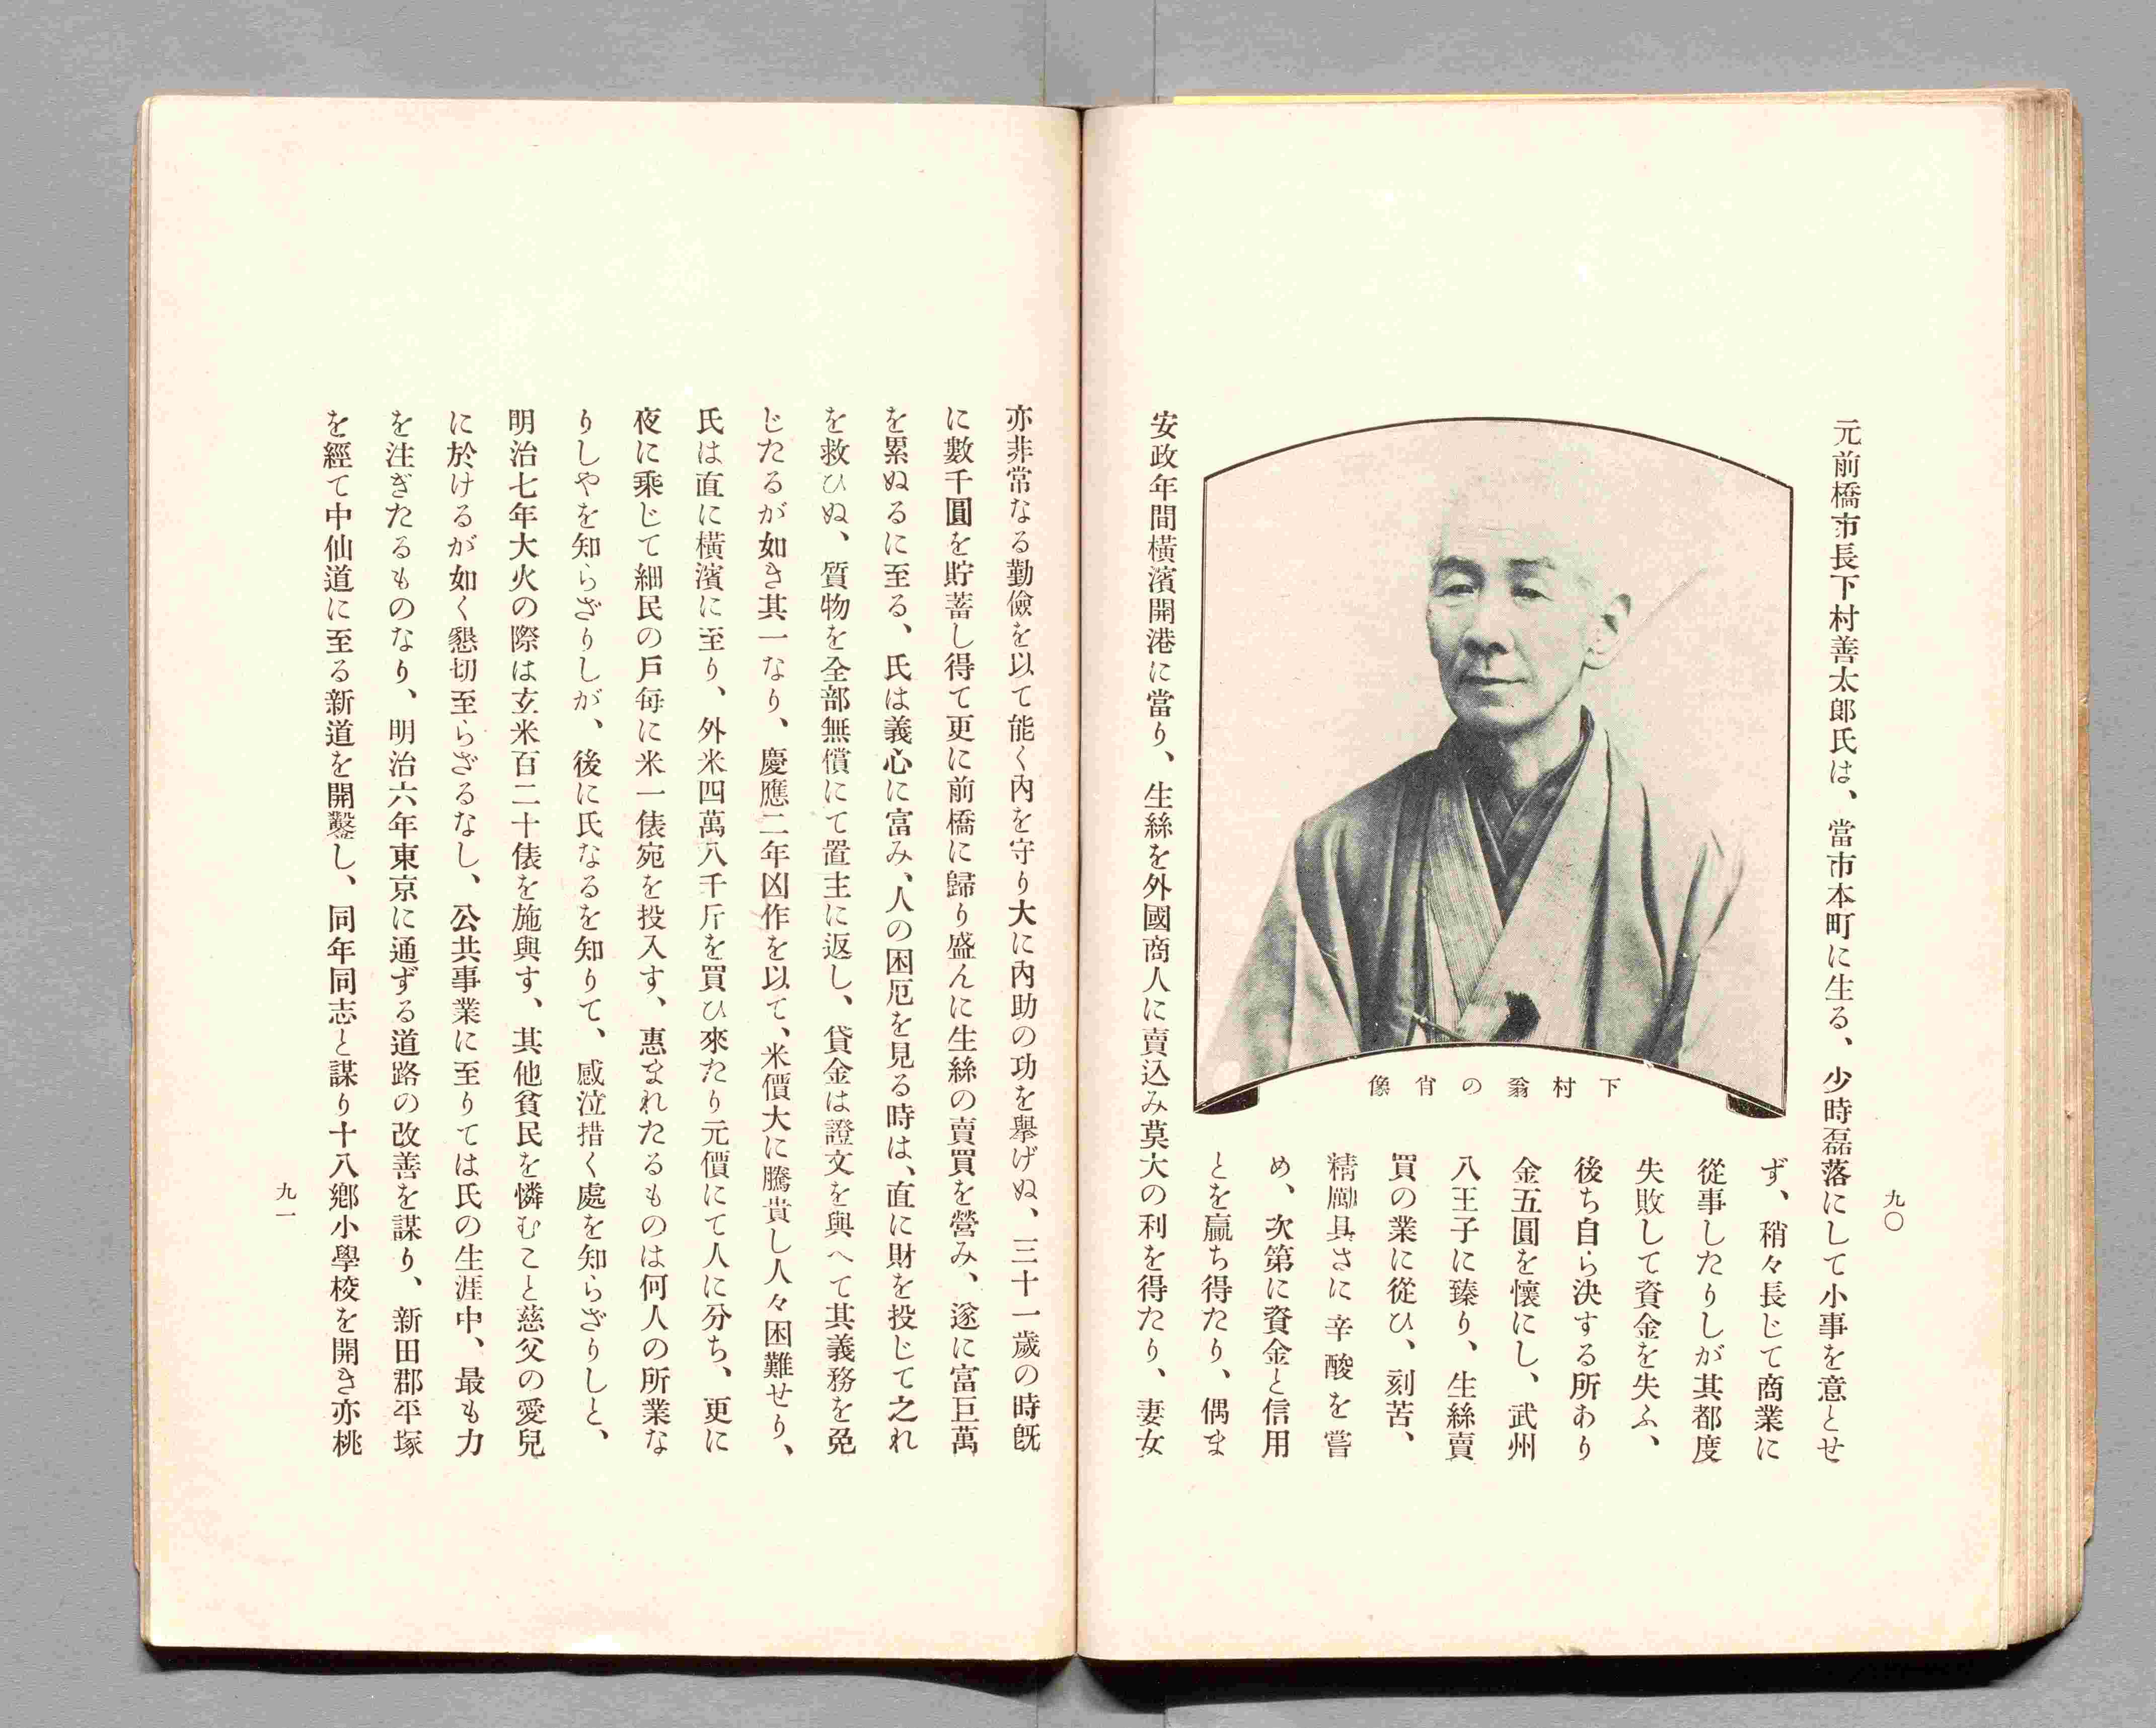 九〇
元前橋市長下村善太郎氏は、當市本町に生る、少時磊落にして小事を意とせ
ず、稍々長じて商業に
從事したりしが其都度
失敗して資金を失ふ、
後ち自ら決する所あり
金五圓を懷にし、武州
八王子に臻り、生絲賣
買の業に從ひ、刻苦、
精勵具さに辛酸を嘗
め、次第に資金と信用
とを贏ち得たり、偶ま
下村翁の肖像
安政年間橫濱開港に當り、生絲を外國商人に賣込み莫大の利を得たり、妻女
亦非常なる勤儉を以て能く內を守り大に內助の功を擧げぬ、三十一歲の時旣
に數千圓を貯蓄し得て更に前橋に歸り盛んに生絲の賣買を營み、遂に富巨萬
を累ぬるに至る、氏は義心に富み、人の困厄を見る時は、直に財を投じて之れ
を救ひぬ、質物を全部無償にて置主に返し、貸金は證文を與へて其義務を免
じたるが如き其一なり、慶應二年凶作を以て、米價大に騰貴し人々困難せり、
氏は直に橫濱に至り、外米四萬八千斤を買ひ來たり元價にて人に分ち、更に
夜に乘じて細民の戶每に米一俵宛を投入す、惠まれたるものは何人の所業な
りしやを知らざりしが、後に氏なるを知りて、感泣措く處を知らざりしと、
明治七年大火の際は玄米百二十俵を施與す、其他貧民を憐むこと慈父の愛兒
に於けるが如く懇切至らざるなし、公共事業に至りては氏の生涯中、最も力
を注ぎたるものなり、明治六年東京に通ずる道路の改善を謀り、新田郡平塚
を經て中仙道に至る新道を開鑿し、同年同志と謀り十八鄕小學校を開き亦桃
九一